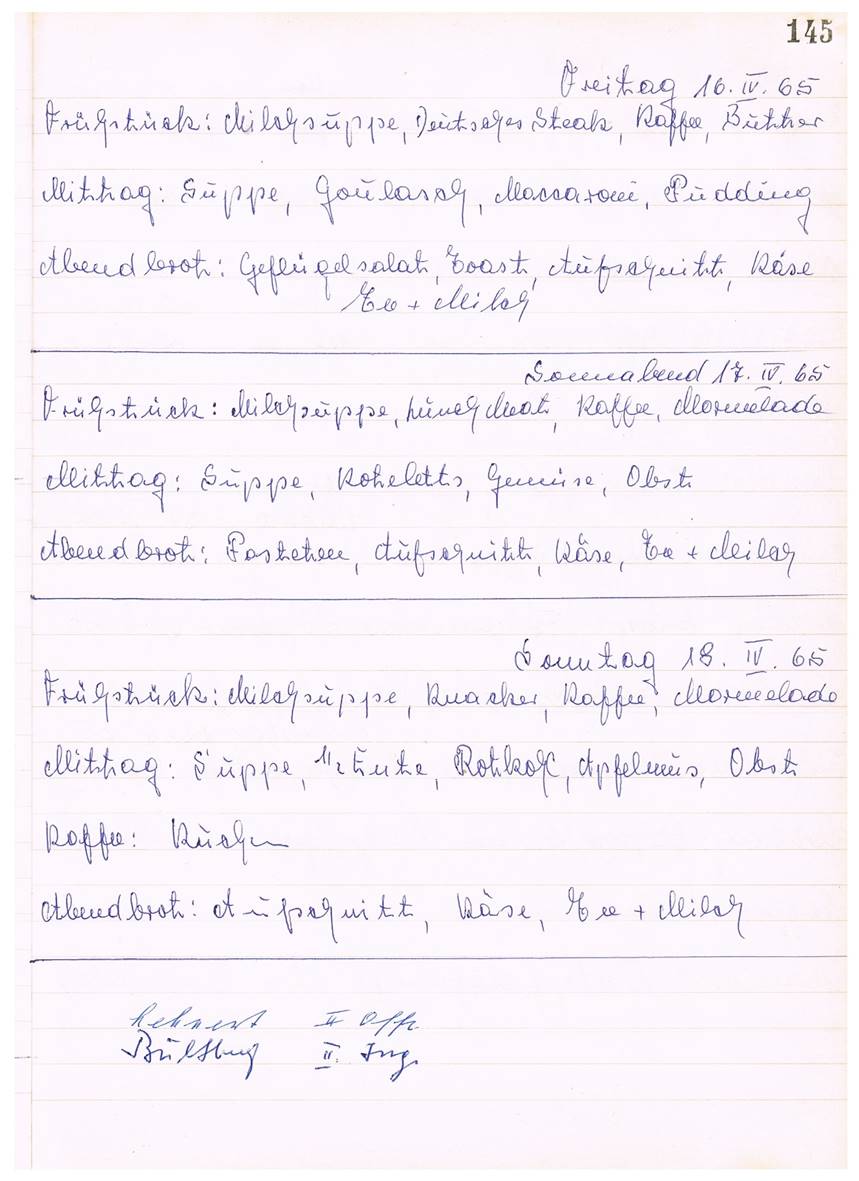 145
Freitag 16. IV. 65
Frühstück: Milchsuppe, Deutsches Steak, Kaffee, Butter
Mittag: Suppe, Goulasch, Maccaroni, Pudding
Abendbrot: Geflügelsalat, Toast, Aufschnitt, Käse
Tee + Milch
Sonnabend 17. IV. 65
Frühstück: Milchsuppe, Kaffee, Marmelade
Mittag: Suppe, Koteletts, Gemüse, Obst
Abendbrot: Pasteten, Aufschnitt, Käse, Tee + Milch
Sonntag 18. IV. 65
Frühstück: Milchsuppe, Knacker, Kaffee, Marmelade
Mittag: Suppe, 1/2 Ente, Rotkohl, Apfelmus, Obst
Kaffee: Kuchen
Abendbrot: Aufschnitt, Käse, Tee + Milch
II Offz.
II. Ing.